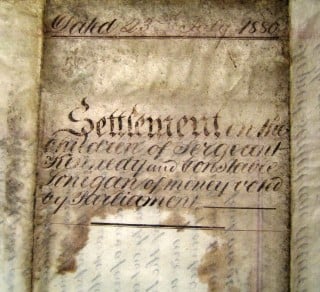 Dated 23rd July 1880
Settlement on the
Children of Sergeant
Kennedy and Constable
Lonigan of money voted
by Parliament